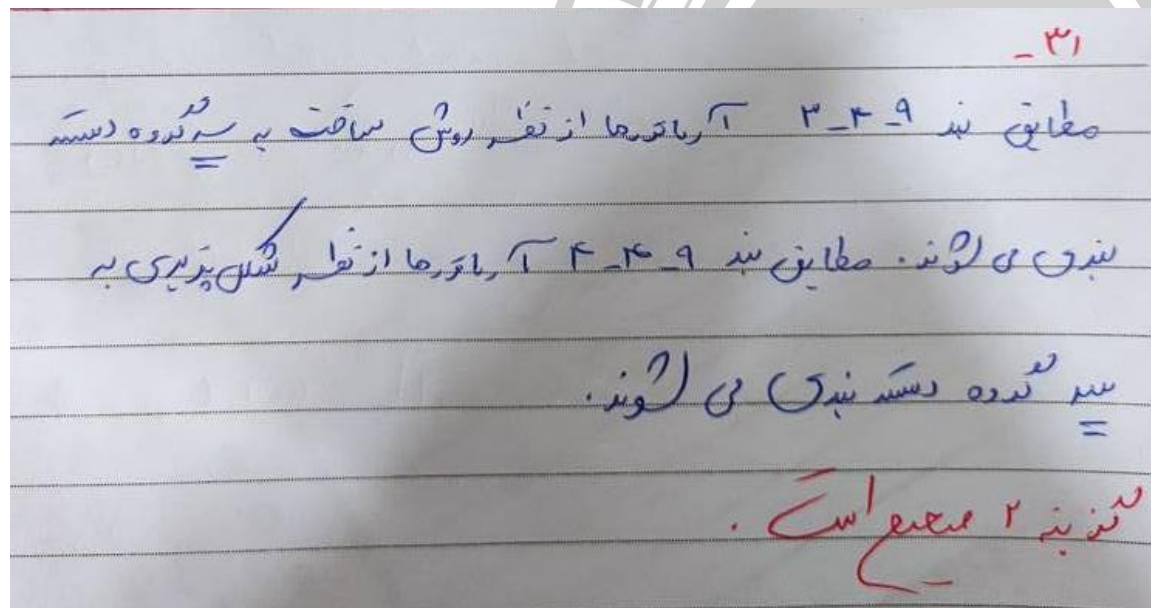 ۳۱ -
مطابق بند ۹-۴-۳ آرماتورها از نظر روش ساخت به سه گروه دسته
بندی می شوند. مطابق بند ۹-۴-۴ آرماتورها از نظر شکل پذیری به
سه گروه دسته بندی می شوند.
گزینه ۲ صحیح است.